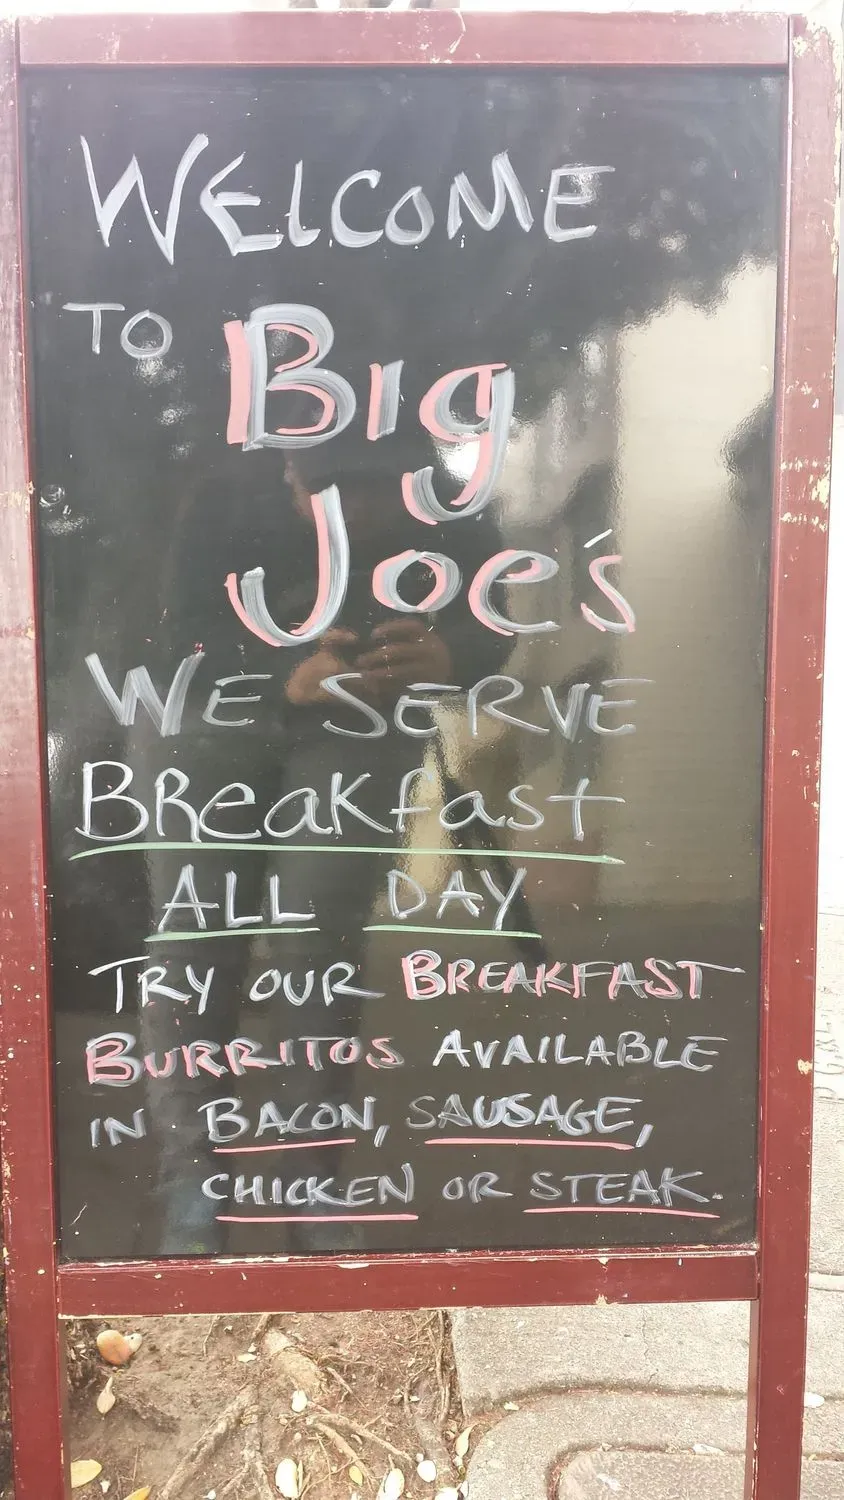 WELCOME
TO Big
Joe's
WE SERVE
BReakfast
ALL DAY
TRY OUR BREAKFAST
BURRITOS AVAILABLE
IN BACON, SAUSAGE,
CHICKEN OR STEAK.